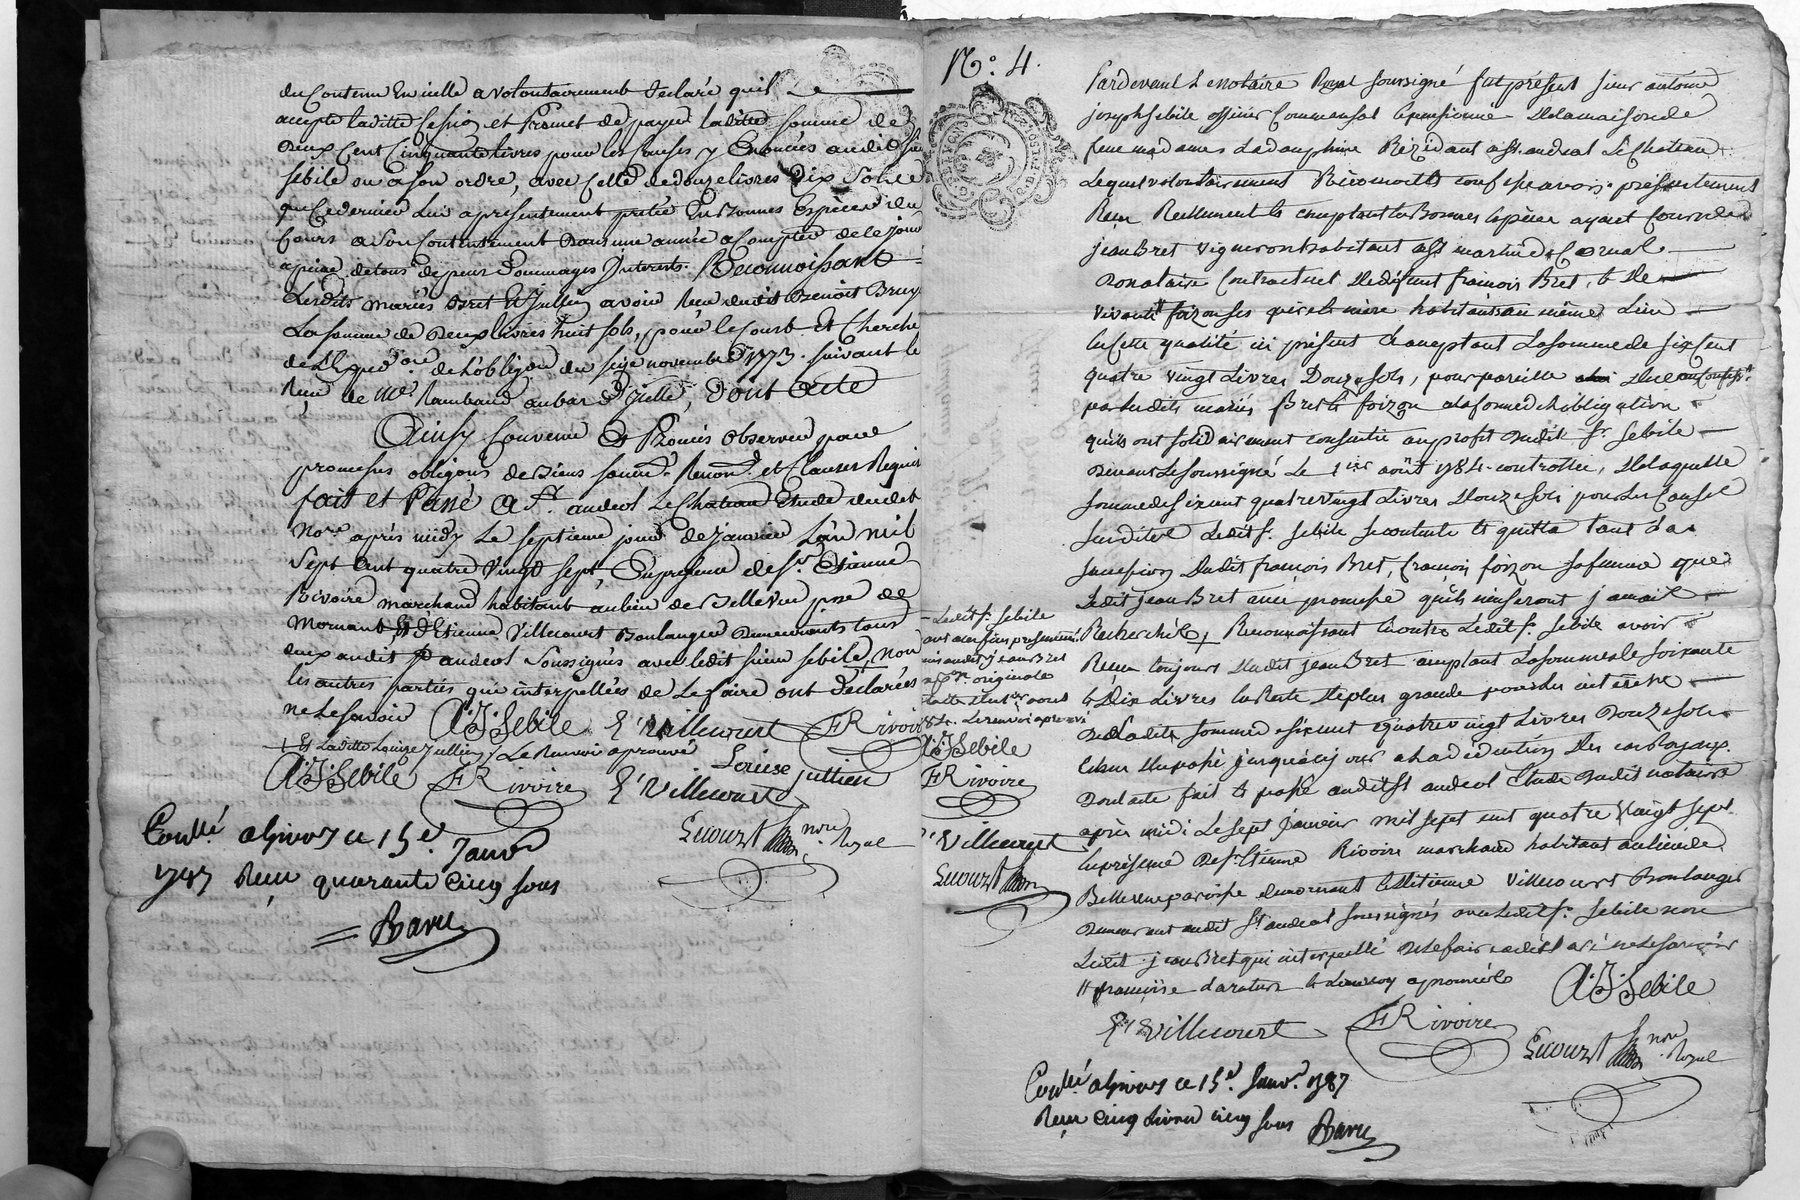 du Contenu En icelle a volontairement declaré quil Le
accepte laditte Cession et Promet de payer laditte somme de
Deux Cent Cinquante livres pour les causes y Enoncées audit Sr
Sebile ou a son ordre, avec Celle de douze livres Dix Sols
que ce dernier lui a presentement pretée En Bonnes Especes du
Cours a Son Contentement Dans une année a Compter de ce jour
a peine de tous depens Dommages Interets. Reconnoissant
Lesdits mariés Bret et Jullien avoir Reçu dudit Benoit
La somme de Deux livres huit sols, pour le Court et Cherche
de l'obligon du seize novembre 1773. suivant le
Reçu de Me Rambaud au bas d'icelle, Dont Acte
Ainsy Convenu Et Promis Observer par
promesses obligons de Biens soumd. Renond. et Clauses Requis
fait et Passé A St. andeol Le Chateau Etude dudit
Nore après midy Le septieme jour de Janvier L'an mil
Sept Cent quatre Vingt sept, En presence de Sr Etienne
Rivoire marchand habitant au lieu de Bellevue psse de
Mornant Et d'Etienne Villecourt Boulanger Demeurants tous
deux audit St andeol Soussignés avec ledit sieur Sebile, non
les autres parties qui interpellées de Le faire ont déclarées
ne le scavoir A.J. Sebile E. Villecourt E Rivoire
+ Et Laditte Louise Jullien / Le Renvoi aprouvé
Louise jullien
A.J. Sebile E Rivoire E. Villecourt
Lecourt nore Royal
Conllé a Givors ce 15e. Janvr
1787 Reçu quarante Cinq sous
Bary
N.° 4.
Pardevant Le Notaire Royal soussigné fut présent sieur antoine
joseph Sebile officier Commensal & pensionné de la maison de
feue madame La dauphine Rezidant a St. andeol Le Chateau
Lequel volontairement Reconnoit & confesse avoir présentement
Reçu Reellement & comptant en Bonnes Espèces ayant Cours de
jean Bret vigneron habitant a St martin de Cornas
Donataire Contractuel de defunt françois Bret, & de
vivante foizon ses père & mère habitants au même Lieu
En Cette qualité ici présent & acceptant La somme de six Cent
quatre vingt Livres Douze Sols, pour pareille due
par lesdits mariés Bret & foizon a la forme de l'obligation
qu'ils ont solidairement consentie au profit dudit Sr. Sebile
Devant Le soussigné Le 1ier août 1784. controllée, De laquelle
somme de six cent quatre vingt Livres Douze Sols pour Les Causes
susdites Ledit Sr. Sebile se contente & quitte tant La
succession Dudit francois Bret, françoise foizon sa femme que
Ledit jean Bret avec promesse qu'ils n'en seront jamais
Recherchés, Reconnoissant En outre Ledit Sr. Sebile avoir
Reçu toujours dudit jean Bret comptant La somme de soixante
& Dix Livres En Reste de plus grande pour les interets
De Ladite somme de six cent quatre vingt Livres Douze Sols
Echus du passé jusqu'à ce jour a la déduction Des
Dont acte fait & passé audit St andeol Etude dudit notaire
après midi Le sept Janvier mil sept cent quatre Vingt sept
En présence de Sr. Etienne Rivoire marchand habitant au lieu de
Bellevue paroisse de mornant & d'etienne Villecourt Boulanger
Demeurant audit St andeol soussignés avec Ledit Sr. Sebile non
Ledit jean Bret qui interpellé de Le faire a déclaré ne Le scavoir
A.J. Sebile
E. Villecourt E Rivoire
Lecourt nore Royal
Conllé a Givors ce 15e. Janvr. 1787
Reçu Cinq Livres cinq sous Bary
Ledit Sr. Sebile
audit jean Bret
originale
Le renvoi aprouvé
A.J. Sebile
E Rivoire
E. Villecourt
Lecourt nore